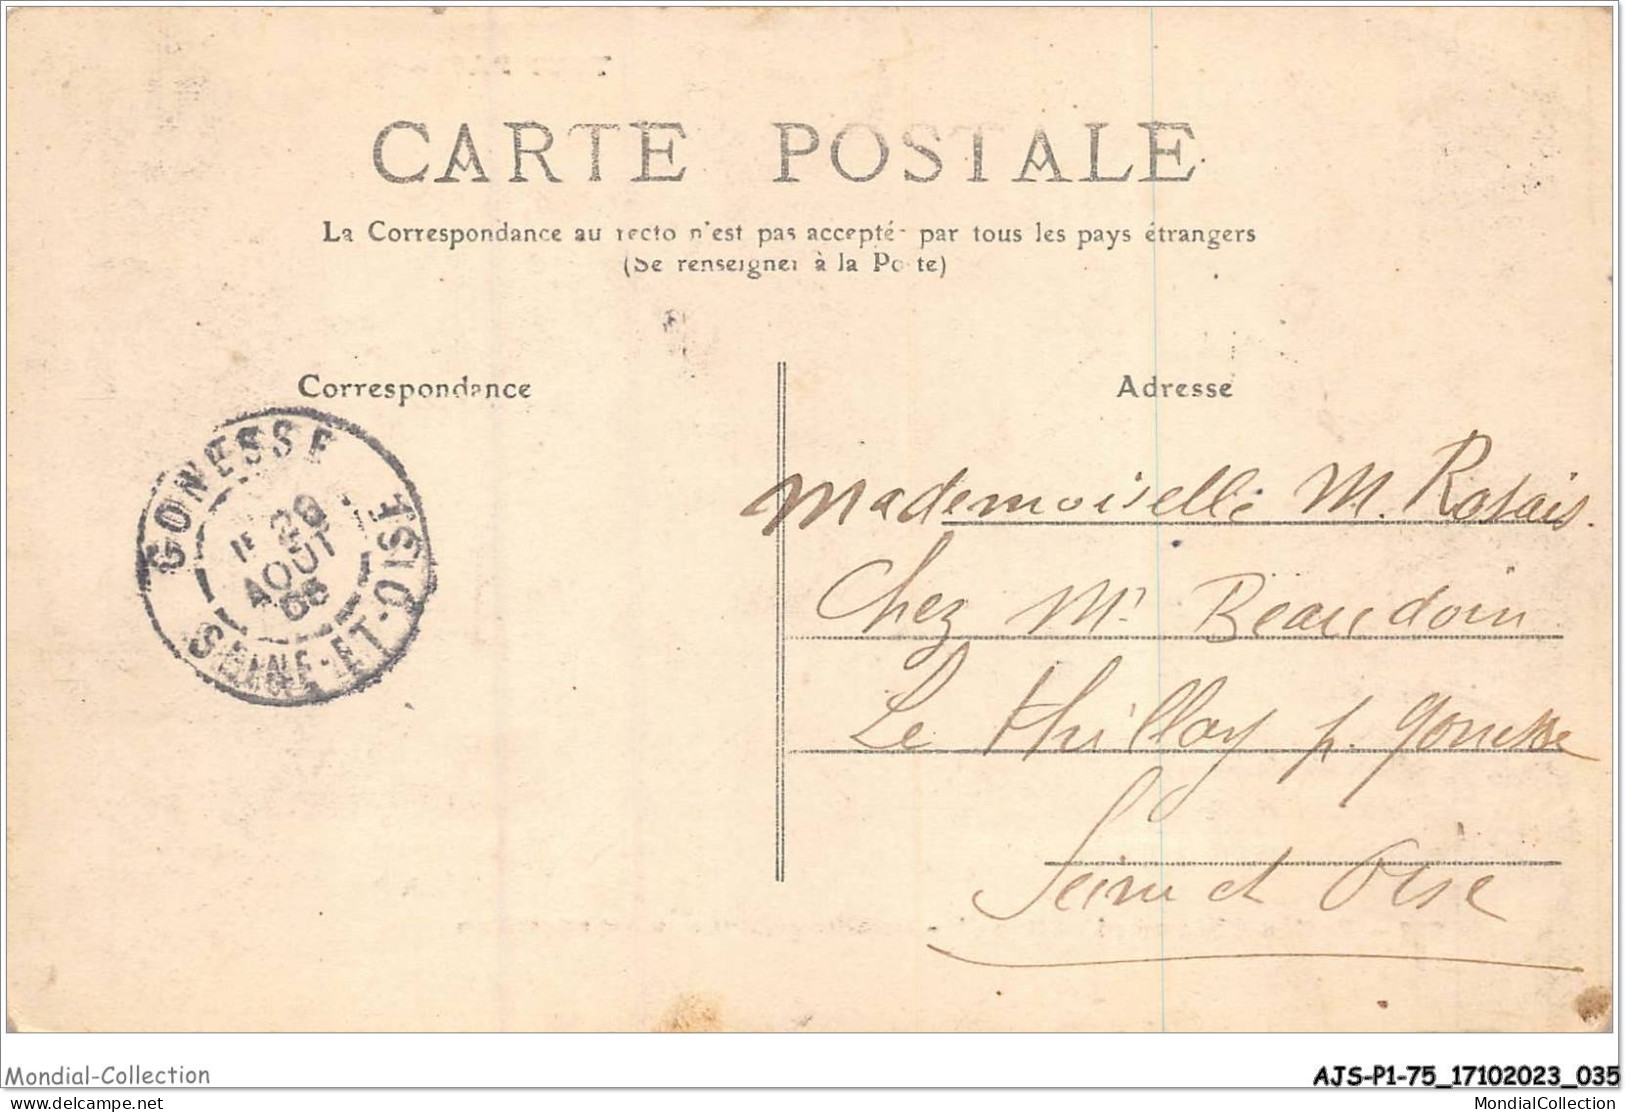 CARTE POSTALE
La Correspondance au recto n'est pas accepté par tous les pays étrangers
(Se renseigner à la Poste)
Correspondance
Adresse
GONESSE
29
AOUT
SEINE-ET-OISE
Mademoiselle M. Rosais.
Chez Mr Beaudoin
Le thillay p. Gonesse
Seine et Oise
Mondial-Collection
AJS-P1-75_17102023_035
delcampe.net
MondialCollection